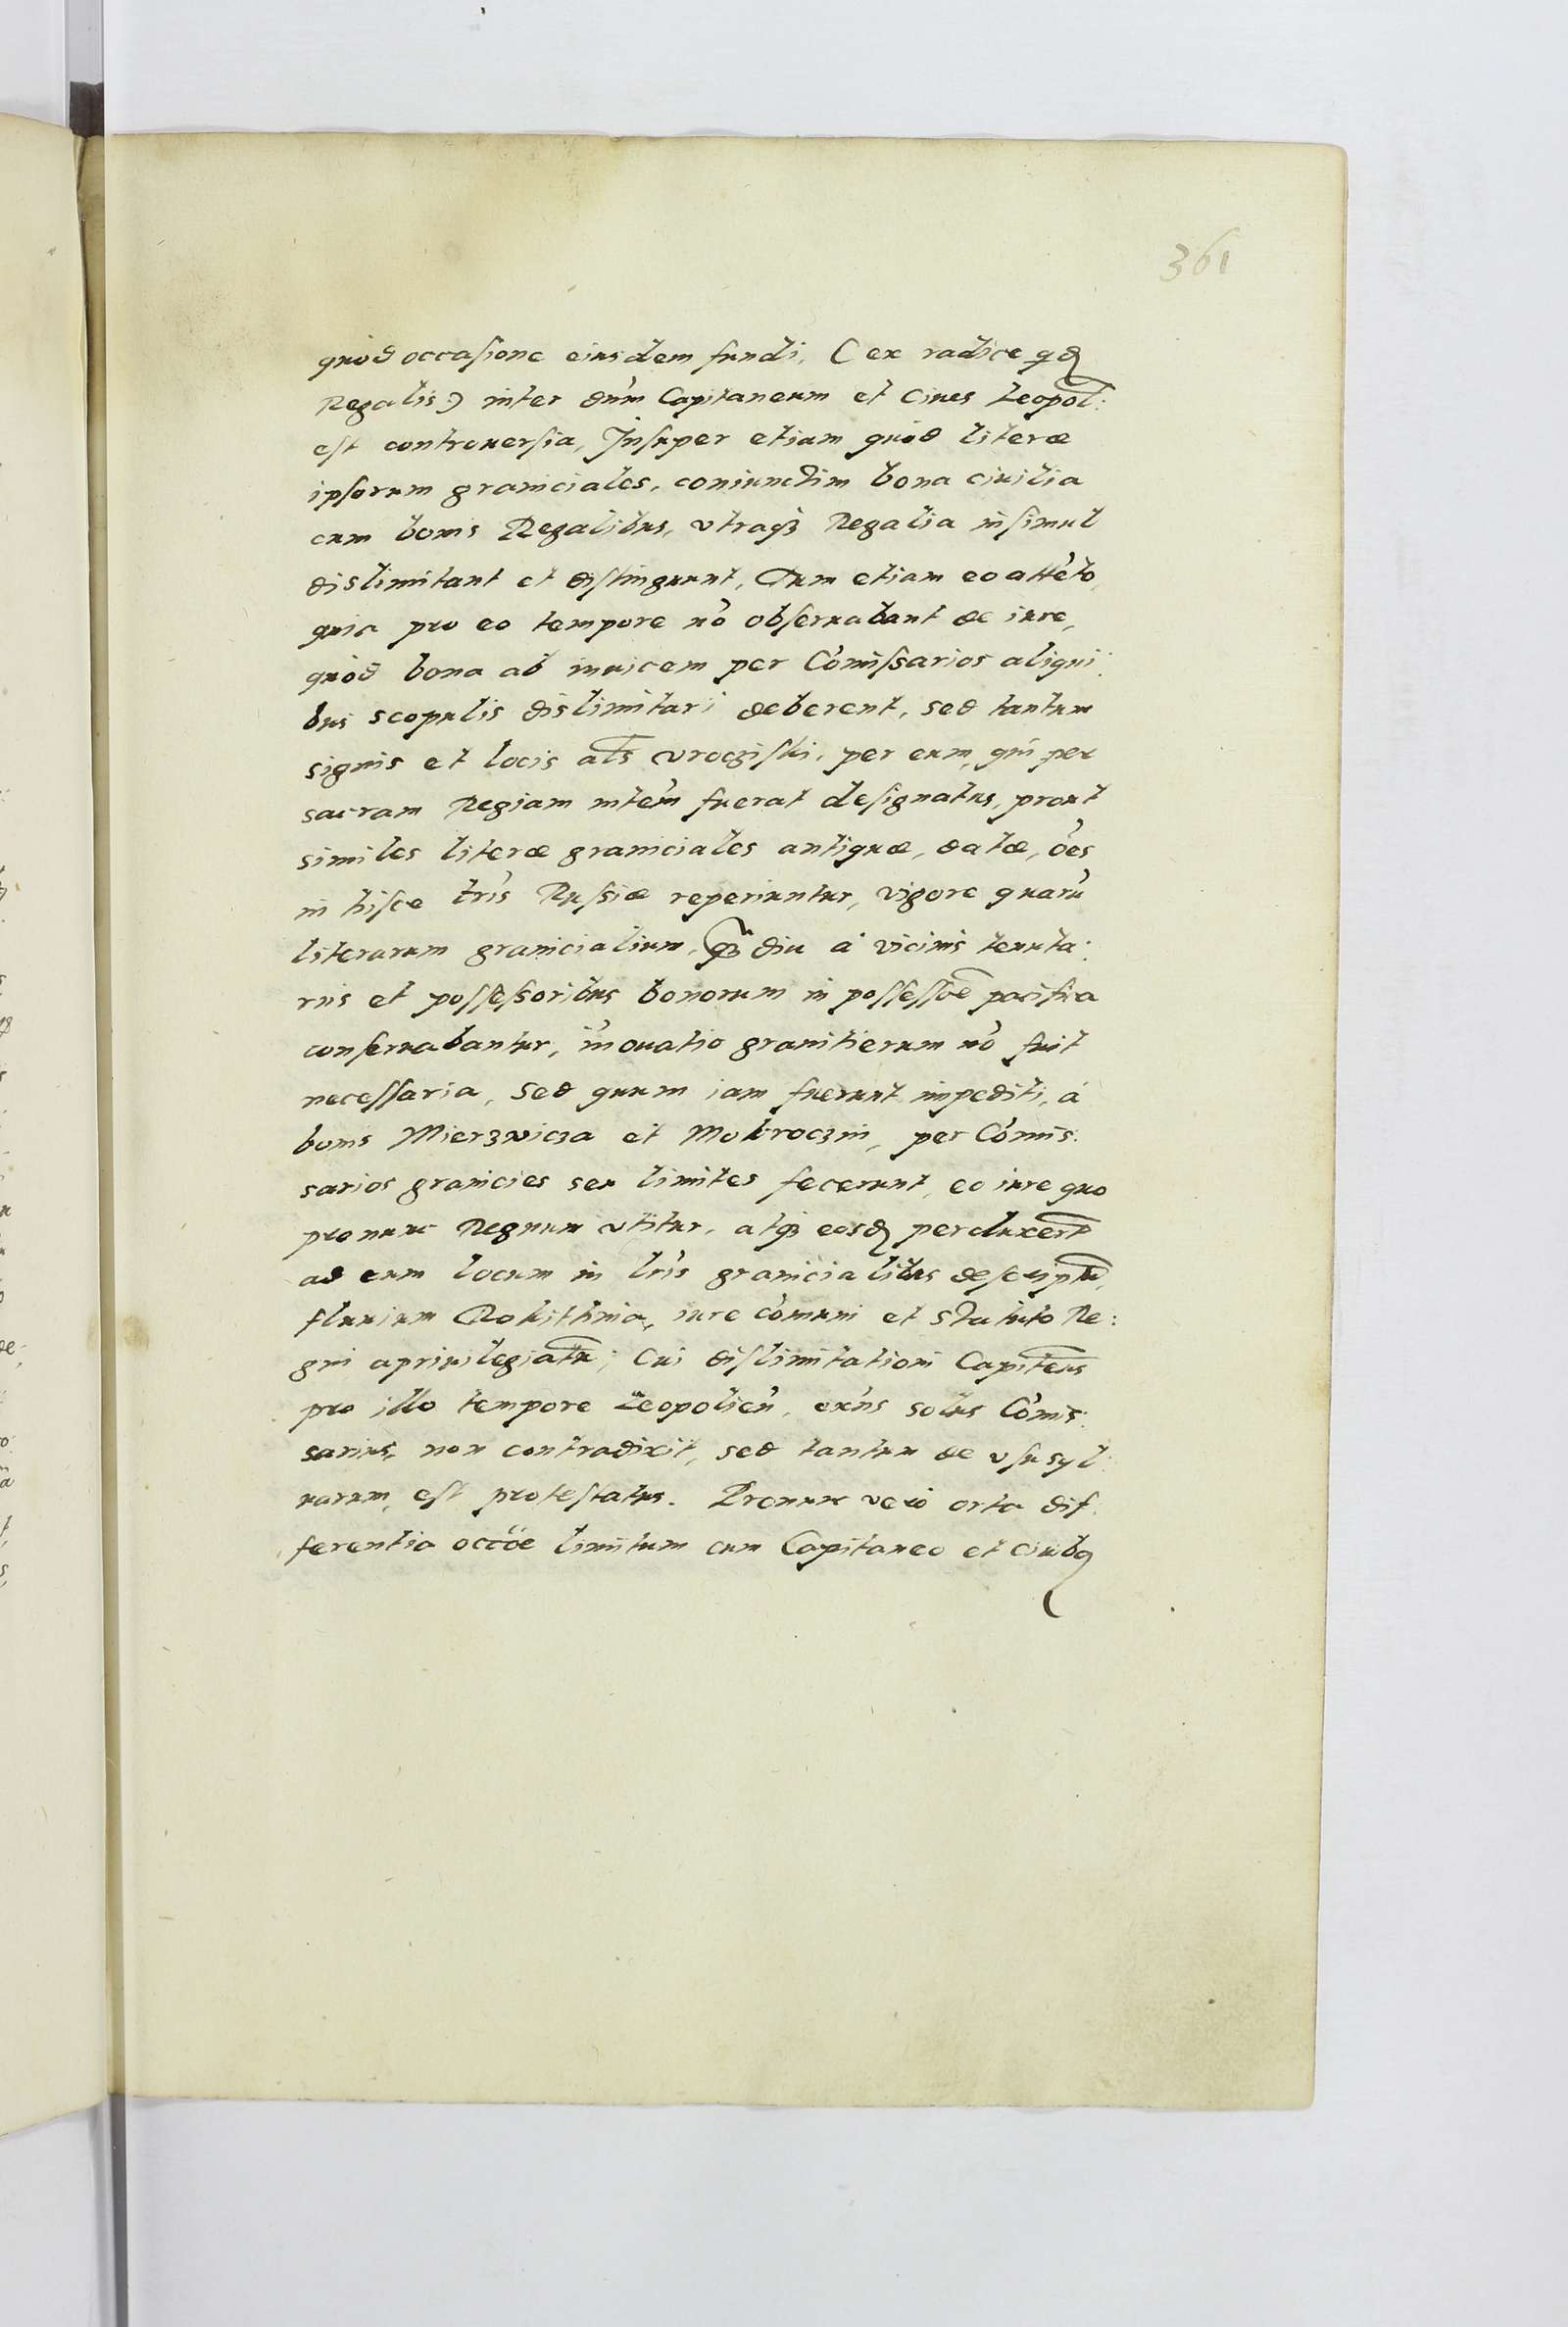 361
quod occasione eiusdem fundi, (ex radice qd
Regalis:) inter dnm Capitaneum et Ciues Leopol:
est controuersia, Insuper etiam quod literæ
ipsorum graniciales, coniunctim bona ciuilia
cum bonis Regalibus, vtraqz Regalia insimul
dislimitant et distingunt, Tum etiam eo attēto,
quia pro eo tempore nō obseruabant de iure,
quod bona ab inuicem per Cōmissarios aliqui:
bus scopulis dislimitari deberent, sed tantum
signis et locis als vrocziski, per eum, qui per
sacram Regiam mtēm fuerat designatus, prout
similes literæ graniciales antiquæ, datæ, ōes
in hisce tris Russiæ reperiuntur, vigore quarū
literarum granicialium, qz diu à vicinis tenuta:
riis et possessoribus bonorum in possessōe pacifica
conseruabantur, īnouatio granitierum nō fuit
necessaria, sed quum iam fuerunt impediti, à
bonis Mierzwicza et Mokroczin, per Cōmis:
sarios granicies seu limites fecerunt, eo iure quo
pronunc Regnum vtitur, atqz eosd perduxert
ad eum locum in lris granicialibus descriptū,
fluuium Rokithnia, iure cōmuni et Statuto Re:
gni apriuilegiatū; Cui dislimitationi Capiteus
pro illo tempore Leopolieñ, exñs solus Cōmis:
sarius, non contradixit, sed tantum de vsu syl:
uarum, est protestatus. Pronunc vero orta dif:
ferentia occōe limitum cum Capitaneo et Ciuibq